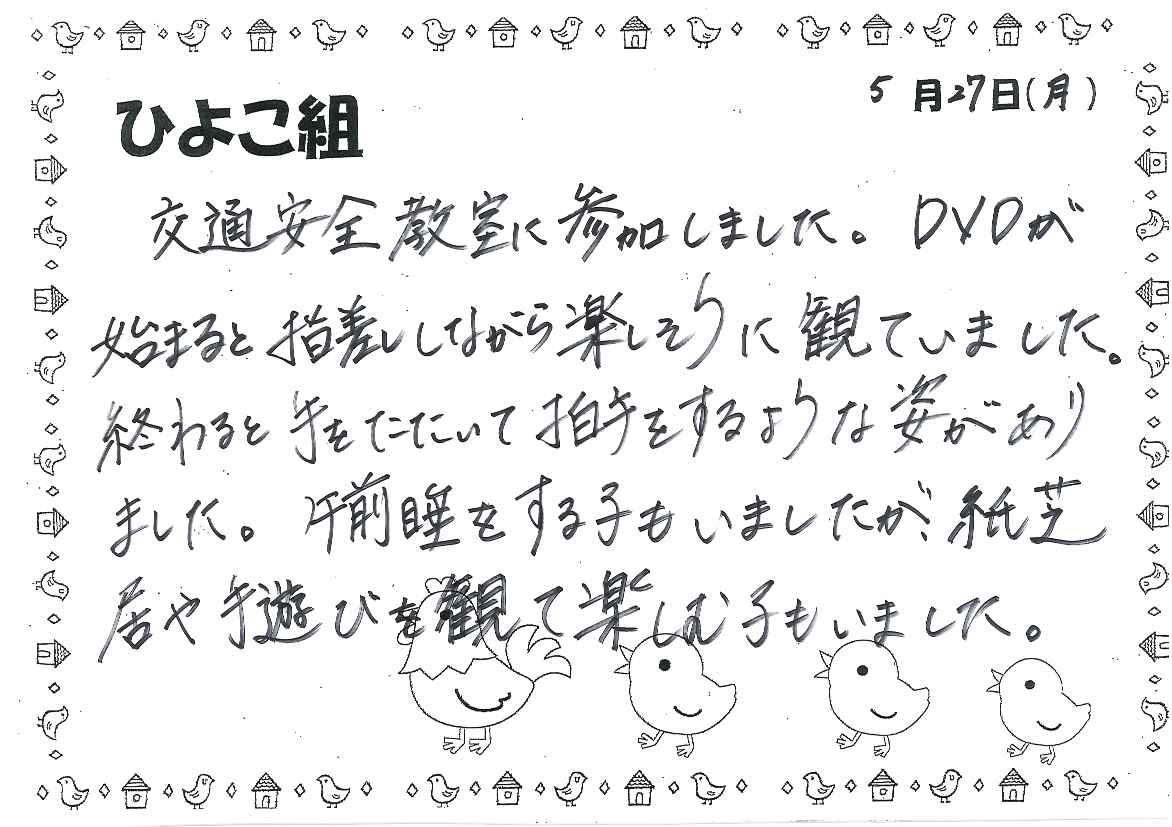 5月27日(月)
ひよこ組
交通安全教室に参加しました。DVDが
始まると指差ししながら楽しそうに観ていました。
終わると手をたたいて拍手をするような姿があり
ました。午前睡をする子もいましたが、紙芝
居や手遊びを観て楽しむ子もいました。